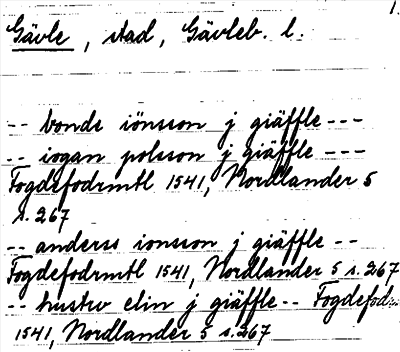 1.
Gävle, stad, Gävleb. l.
-- bonde iönsson j giäffle ---
-- iogan polsson j giäffle ---
Fogdefodrmtl 1541, Nordlander 5
s. 267
-- anderss ionsson j giäffle --
Fogdefodrmtl 1541, Nordlander 5 s. 267
-- hustrv elin j giäffle -- Fogdefodr
1541, Nordlander 5 s. 267